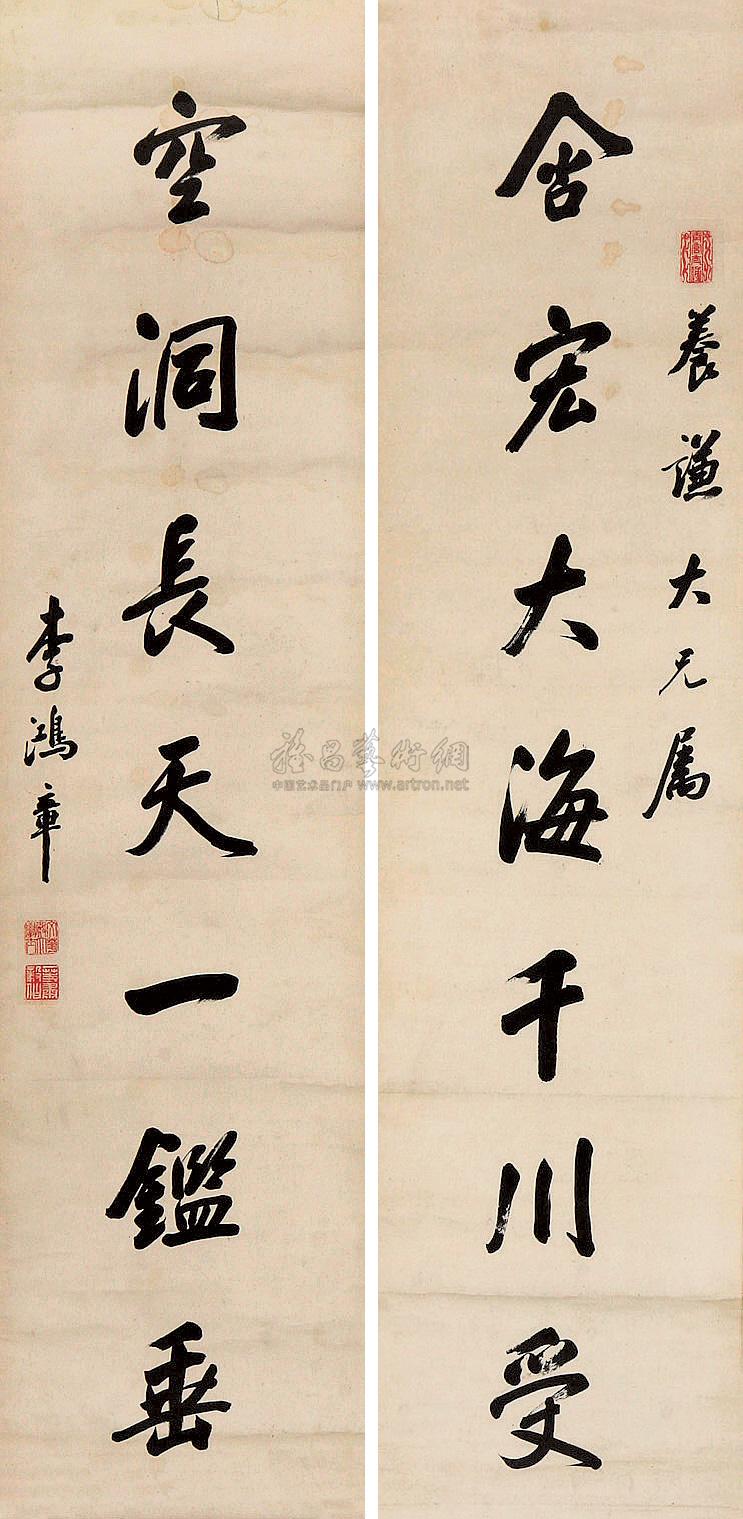 養謙大兄属
含宏大海千川受
空洞長天一鑑垂
李鴻章
雅昌藝術網
中国艺术品门户 www.artron.net